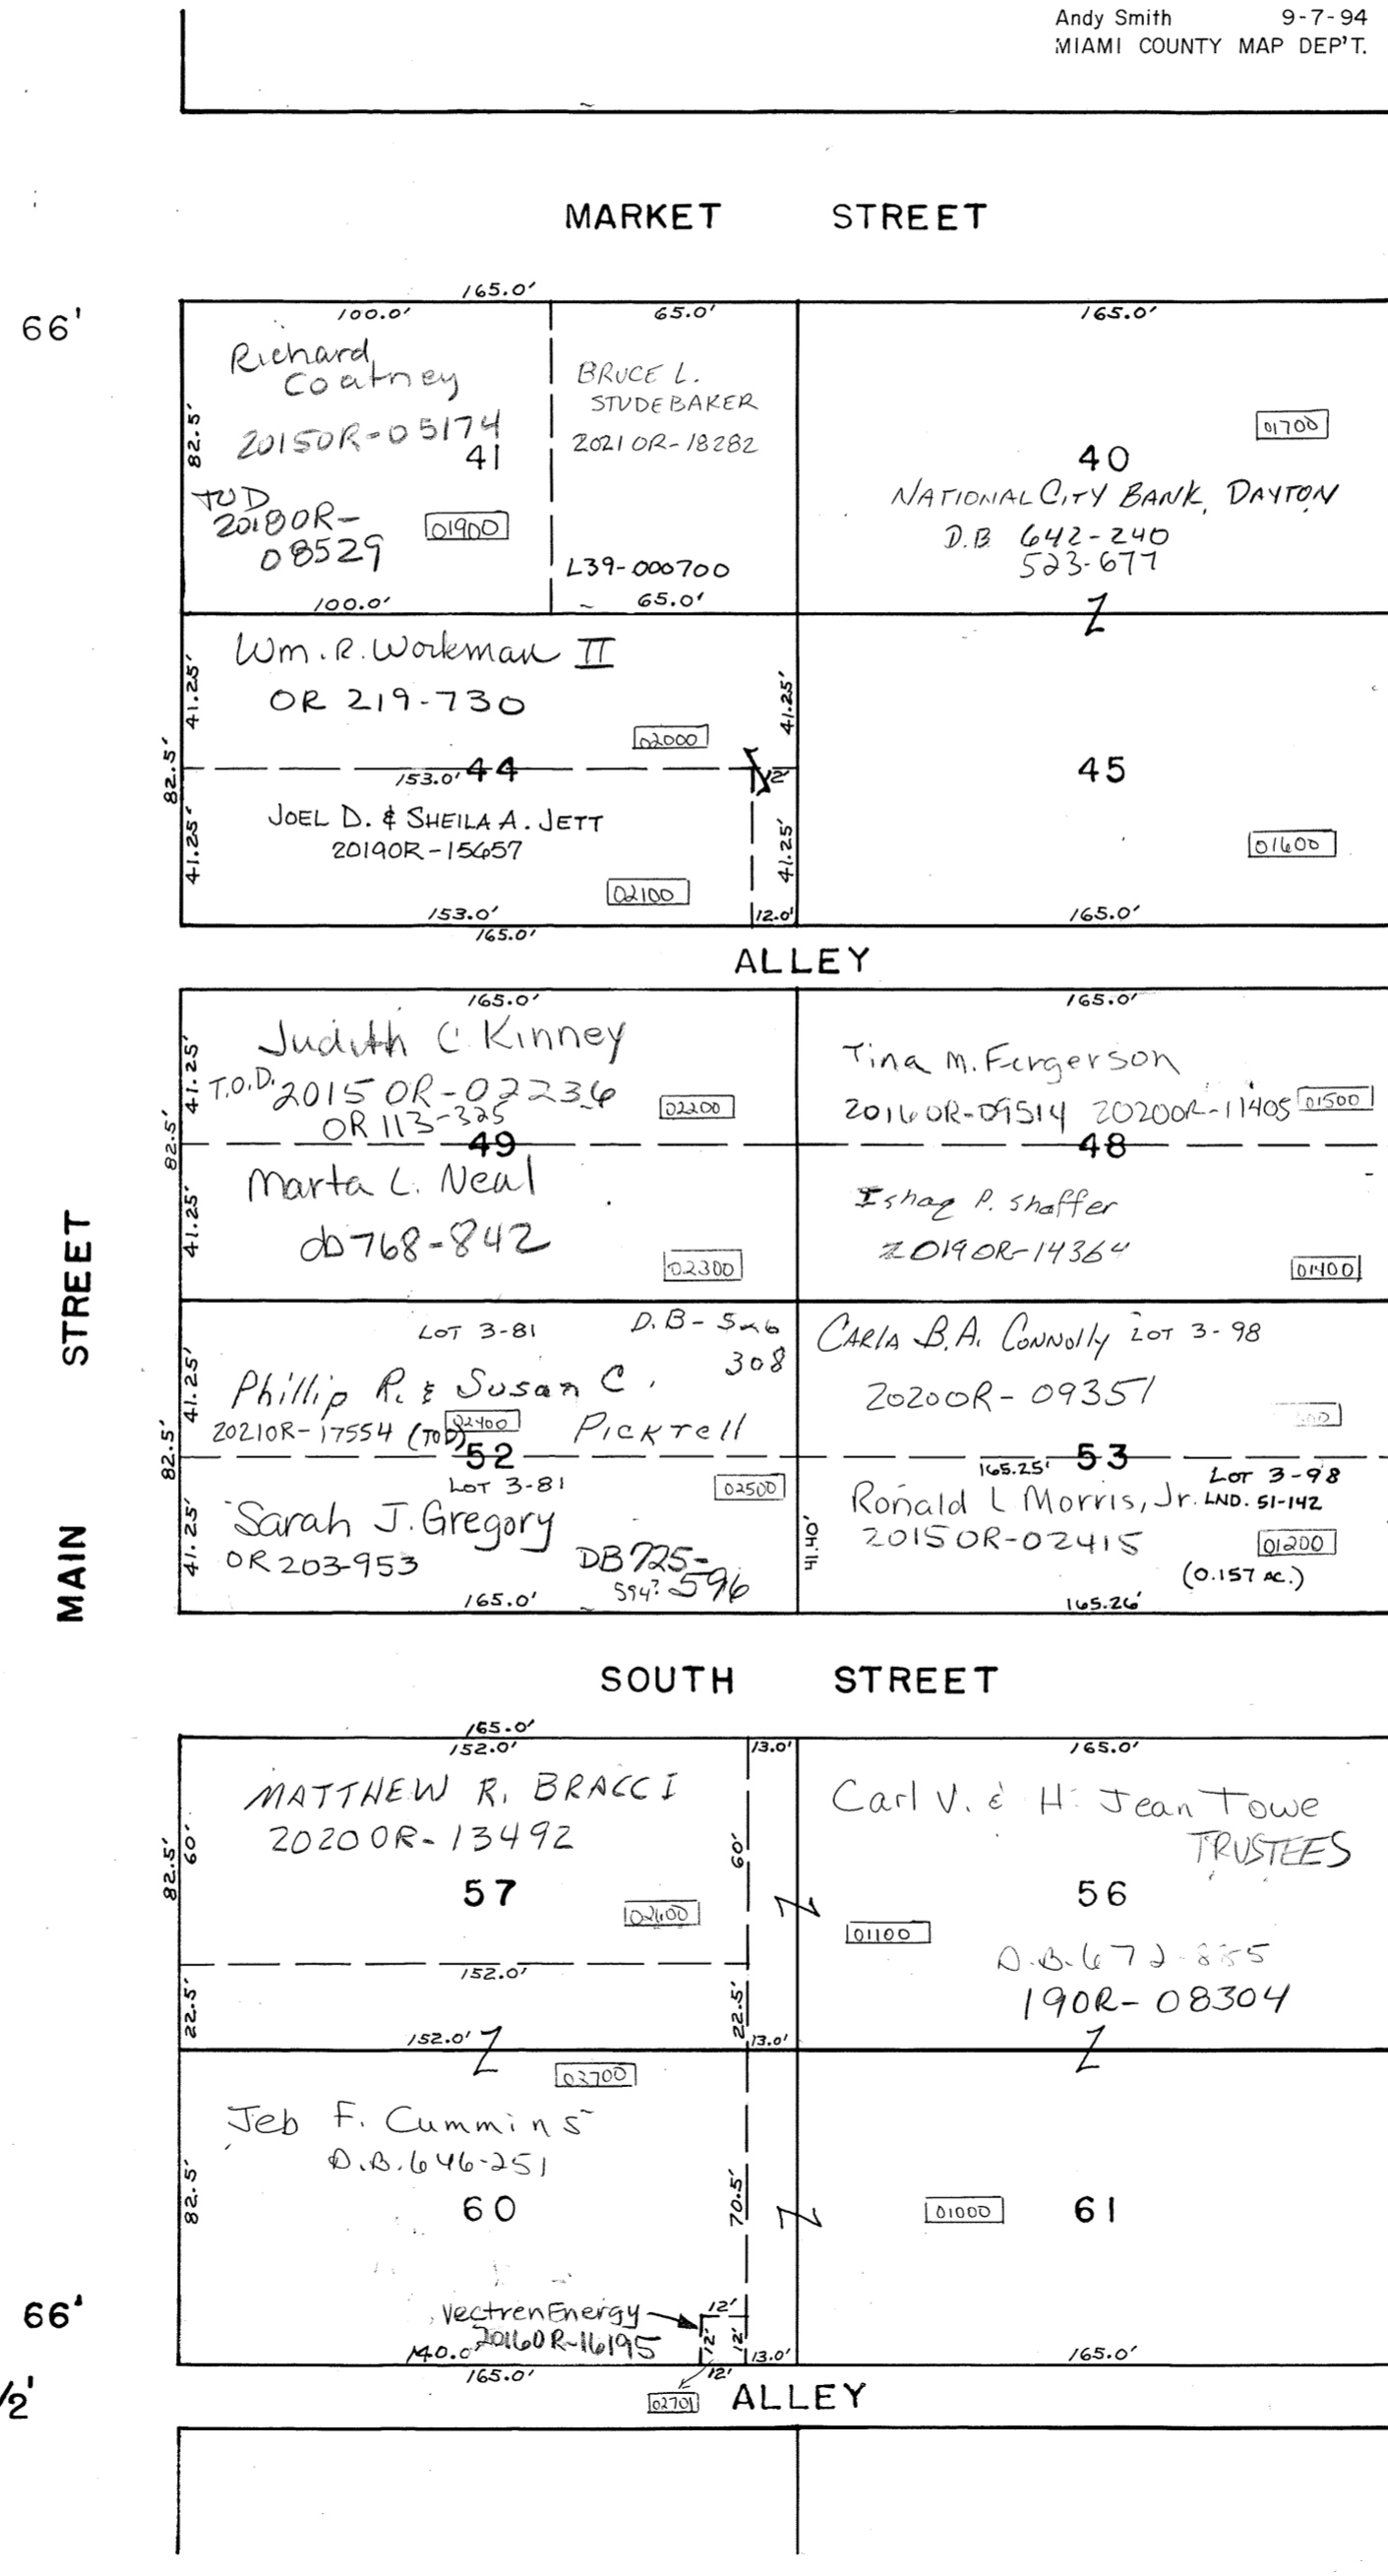 Andy Smith 9-7-94
MIAMI COUNTY MAP DEP'T.
MARKET STREET
66'
165.0'
100.0'
65.0'
165.0'
Richard
Coatney
82.5'
20150R-05174
41
TOD
20180R-
08529
01900
100.0'
BRUCE L.
STUDEBAKER
2021 OR-18282
L39-000700
65.0'
01700
40
NATIONAL CITY BANK, DAYTON
D.B. 642-240
523-677
Wm. R. Workman II
OR 219-730
41.25'
41.25'
02000
82.5'
153.0' 44
12'
JOEL D. & SHEILA A. JETT
20190R-15657
41.25'
41.25'
02100
153.0'
12.0'
165.0'
45
01600
165.0'
ALLEY
165.0'
165.0'
Judith C. Kinney
T.O.D. 2015 OR-02236
OR 113-325
41.25'
02200
82.5'
49
Marta L. Neal
db 768-842
41.25'
02300
Tina M. Fergerson
20160R-09514 20200R-11405
01500
48
Ishaq P. Shaffer
20190R-14364
01400
MAIN STREET
LOT 3-81
D.B-526
308
Phillip R. & Susan C.
Picktell
20210R-17554 (TOD)
02400
41.25'
82.5'
52
LOT 3-81
02500
Sarah J. Gregory
OR 203-953
DB 725-
594? 596
41.25'
165.0'
CARLA B.A. CONNOLLY LOT 3-98
20200R-09351
165.25' 53
LOT 3-98
Ronald L Morris, Jr. LND. 51-142
20150R-02415
41.40'
01200
(0.157 AC.)
165.26'
SOUTH STREET
165.0'
152.0'
13.0'
165.0'
MATTHEW R. BRACCI
20200R-13492
82.5'
60'
60'
57
02600
152.0'
22.5'
22.5'
152.0'
13.0'
Carl V. & H. Jean Towe
TRUSTEES
56
01100
D.B. 672-885
190R-08304
02700
Jeb F. Cummins
D.B. 646-251
82.5'
70.5'
60
01000
61
66'
Vectren Energy
20160R-16195
12'
12'
12'
140.0'
13.0'
165.0'
12'
165.0'
/2'
02701
ALLEY